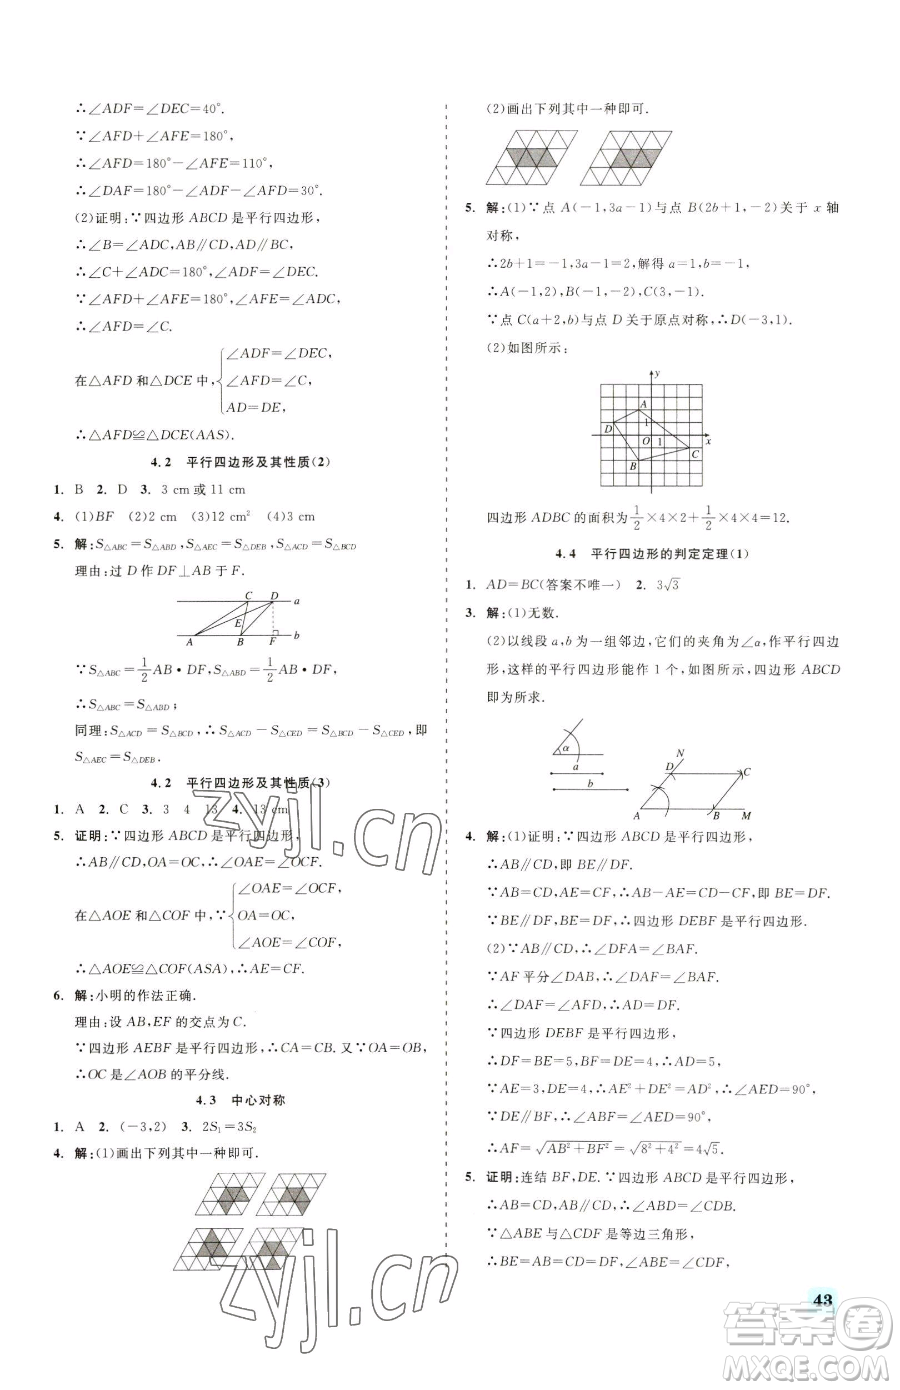 ∴∠ADF=∠DEC=40°.
∵∠AFD+∠AFE=180°,
∴∠AFD=180°-∠AFE=110°,
∴∠DAF=180°-∠ADF-∠AFD=30°.
(2)证明:∵四边形 ABCD 是平行四边形,
∴∠B=∠ADC,AB∥CD,AD∥BC,
∴∠C+∠ADC=180°,∠ADF=∠DEC.
∵∠AFD+∠AFE=180°,∠AFE=∠ADC,
∴∠AFD=∠C.
在△AFD 和△DCE 中,{∠ADF=∠DEC,
∠AFD=∠C,
AD=DE,
∴△AFD≌△DCE(AAS).
4.2 平行四边形及其性质(2)
1. B 2. D 3. 3 cm或 11 cm
4. (1)BF (2)2 cm (3)12 cm² (4)3 cm
5. 解:S△ABC=S△ABD,S△AEC=S△DEB,S△ACD=S△BCD
理由:过 D 作 DF⊥AB 于 F.
C D a
E
A B F b
∵S△ABC=1/2 AB·DF,S△ABD=1/2 AB·DF,
∴S△ABC=S△ABD;
同理:S△ACD=S△BCD,∴S△ACD-S△CED=S△BCD-S△CED,即
S△AEC=S△DEB.
4.2 平行四边形及其性质(3)
1. A 2. C 3. 3 4 13 4. 13 cm
5. 证明:∵四边形 ABCD 是平行四边形,
∴AB∥CD,OA=OC,∴∠OAE=∠OCF.
在△AOE 和△COF 中,∵{∠OAE=∠OCF,
OA=OC,
∠AOE=∠COF,
∴△AOE≌△COF(ASA),∴AE=CF.
6. 解:小明的作法正确.
理由:设 AB,EF 的交点为 C.
∵四边形 AEBF 是平行四边形,∴CA=CB.又∵OA=OB,
∴OC 是∠AOB 的平分线.
4.3 中心对称
1. A 2. (-3,2) 3. 2S₁=3S₂
4. 解:(1)画出下列其中一种即可.
(2)画出下列其中一种即可.
5. 解:(1)∵点 A(-1,3a-1)与点 B(2b+1,-2)关于 x 轴
对称,
∴2b+1=-1,3a-1=2,解得 a=1,b=-1,
∴A(-1,2),B(-1,-2),C(3,-1).
∵点 C(a+2,b)与点 D 关于原点对称,∴D(-3,1).
(2)如图所示:
y
A
D 1
O 1 x
C
B
四边形 ADBC 的面积为1/2×4×2+1/2×4×4=12.
4.4 平行四边形的判定定理(1)
1. AD=BC(答案不唯一) 2. 3√3
3. 解:(1)无数.
(2)以线段 a,b 为一组邻边,它们的夹角为∠α,作平行四边
形,这样的平行四边形能作 1 个,如图所示,四边形 ABCD
即为所求.
α
a
b
N
D C
A B M
4. 解:(1)证明:∵四边形 ABCD 是平行四边形,
∴AB∥CD,即 BE∥DF.
∵AB=CD,AE=CF,∴AB-AE=CD-CF,即 BE=DF.
∵BE∥DF,BE=DF,∴四边形 DEBF 是平行四边形.
(2)∵AB∥CD,∴∠DFA=∠BAF.
∵AF 平分∠DAB,∴∠DAF=∠BAF,
∴∠DAF=∠AFD,∴AD=DF.
∵四边形 DEBF 是平行四边形,
∴DF=BE=5,BF=DE=4,∴AD=5.
∵AE=3,DE=4,∴AE²+DE²=AD²,∴∠AED=90°.
∵DE∥BF,∴∠ABF=∠AED=90°,
∴AF=√AB²+BF²=√8²+4²=4√5.
5. 证明:连结 BF,DE.∵四边形 ABCD 是平行四边形,
∴AB=CD,AB∥CD,∴∠ABD=∠CDB.
∵△ABE 与△CDF 是等边三角形,
∴BE=AB,DF=CD,∠ABE=∠CDF=60°,
43
zyjl.cn
zyjl.cn
答案圈
MXQE.COM